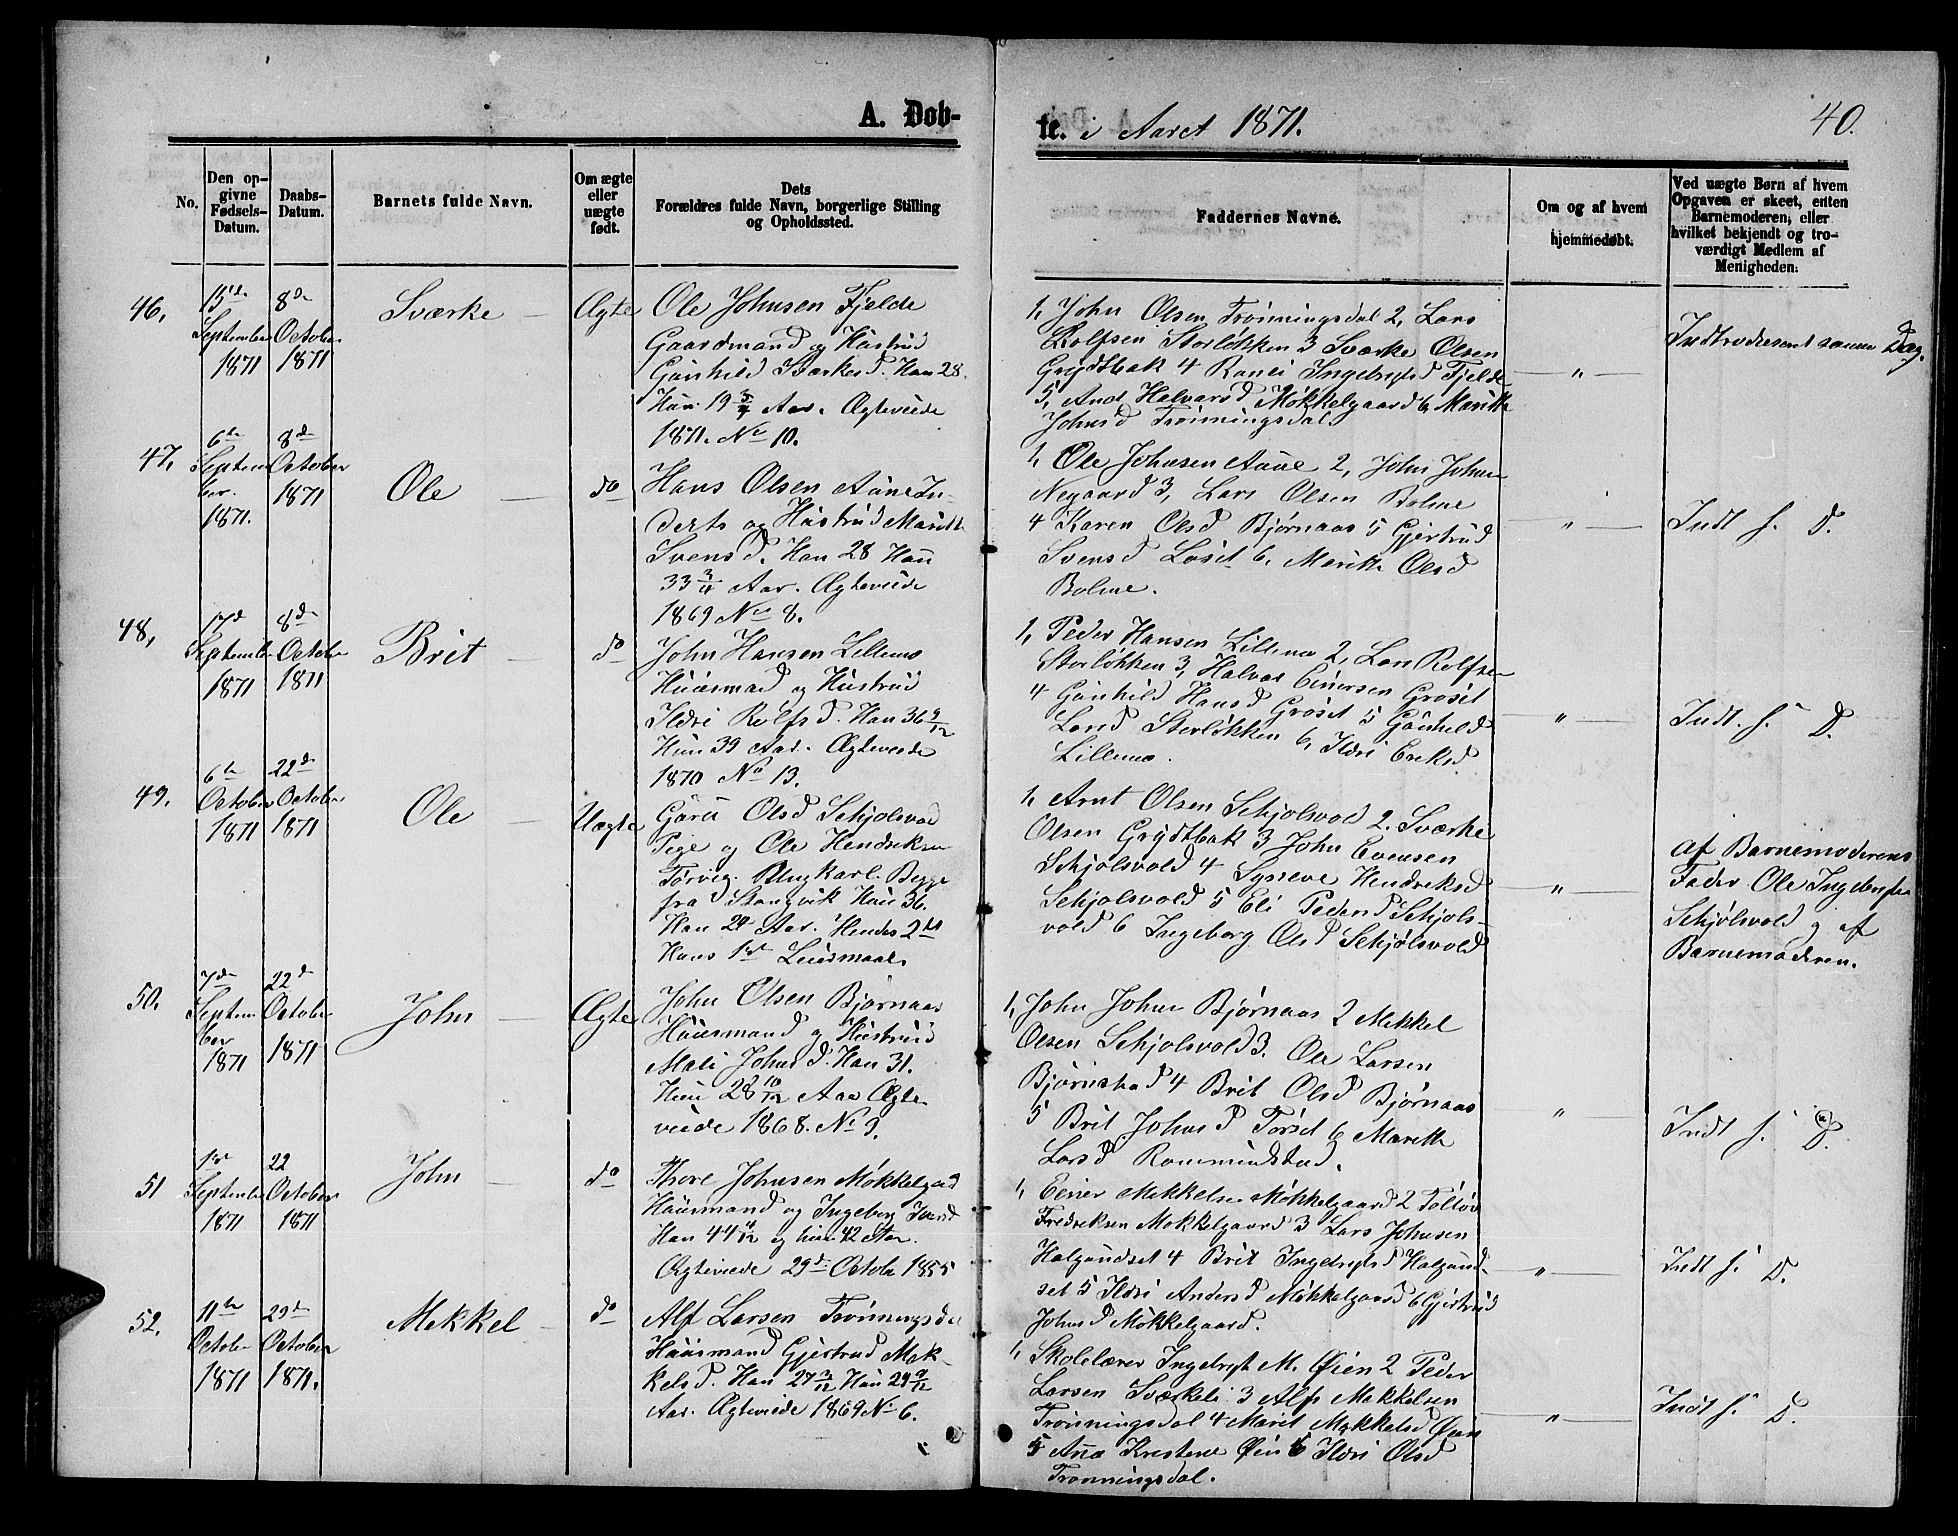 A. Døb-
te. i Aaret 1871.
40.
No.
Den op-
givne
Fødsels-
Datum.
Daabs-
Datum.
Barnets fulde Navn.
Om ægte
eller
uægte
født.
Dets
Forældres fulde Navn, borgerlige Stilling
og Opholdssted.
Faddernes Navne.
Om og af hvem
hjemmedøbt.
Ved uægte Børn af hvem
Opgaven er skeet, enten
Barnemoderen, eller
hvilket bekjendt og tro-
værdigt Medlem af
Menigheden.
46,
15de
September
1871
8de
October
1871
Sværke
Ægte
Ole Johnsen Fjelde
Gaardmand og Hustrud
Gunhild Sværkesd. Han 28
Hun 19 3/4 Aar. Ægteviede
1871. No 10.
1, John Olsen Trønningsdal 2, Lars
Rolfsen Storløkken 3 Sværke Olsen
Grydtbak 4 Ranei Ingebrigtsd Fjelde
5, And Halvarsd Møkkelgaard 6, Maritte
Johnsd Trønningsdal
"
Indtroduseret samme Dag.
47,
6te
Septem
ber.
1871.
8de
October
1871
Ole
do
Hans Olsen Aune In-
derts og Hustrud Maritte
Svensd. Han 28 Hun
33 3/4 Aar. Ægteviede
1869 No 8.
1, Ole Johnsen Aune 2, John Johns
Negaard 3, Lars Olsen Bolme
4 Karen Olsd Bjørnaas 5 Gjertrud
Svensd Løset 6, Maritte Olsd
Bolme.
"
Indt s. D.
48,
17de
September
1871
8de
October
1871
Brit
do
John Hansen Lillemo
Huusmand og Hustrud
Ildri Rolfsd. Han 36 9/12
Hun 39 Aar. Ægteviede
1870 No 13.
1, Peder Hansen Lillemo 2, Lars Rolfsen
Storløkken 3, Halvar Einersen Grøset
4 Gunhild Hansd Grøset 5 Gunhild
Larsd Storløkken 6, Ildri Eriksd
Lillemo.
"
Indt. s. D.
49.
6te
October
1871
22de
October
1871
Ole
Uægte
Guru Olsd Schjølsvold
Pige og Ole Hendreksen
Torvig. Ungkarl. Begge
fra Stangvik Hun 36.
Han 24 Aar. Hendes 2det
Hans 1ste Leiermaal.
1, Arnt Olsen Schjølsvold 2. Sværke
Olsen Grydtbak 3 John Evensen
Schjølsvold 4 Sysseve Hendreksd
Schjølsvold 5 Eli Pedersd Schjøls-
vold 6 Ingeborg Olsd Schjølsvold
"
Af Barnemoderens
Fader Ole Ingebrigtsen
Schjølsvold og af
Barnemoderen.
50.
7de
Septem
ber
1871
22de
October
1871
John
Ægte
John Olsen Bjørnaas
Huusmand og Hustrud
Mali Johnsd. Han 31.
Hun 28 10/12 Aar Ægte
viede 1868. No 9.
1, John Johns Bjørnaas 2 Mekkel
Olsen Schjølsvold 3. Ole Larsen
Bjørnstad 4 Brit Olsd Bjørnaas
5 Brit Johnsd Torset 6 Maritte
Larsd Rommundstad.
"
Indt s. D.
51
1ste
September
1871
22
October
1871
John
do
Thore Johnsen Møkkelgaard
Huusmand og Ingeborg
Han 44 og hun 42 Aar.
Ægteviede 29de Octobr 1855
1, Einer Mekkelsen Møkkelgaard 2
Fredreksen Møkkelgaard 3 Lars Johnsen
Halgundset 4 Brit Ingebrigtsd Halgund-
set 5 Ildri Andersd Møkkelgaard 6 Gjertrud
Johnsd Møkkelgaard.
"
Indt s. D.
52.
11te
October
1871
29de
October
1871.
Mekkel
do
Alf Larsen Trønningsdal
Huusmand Gjertrud Mek-
kelsd. Han 27 3/12 Hun 29 9/12
Aar. Ægteviede 1869 No 6.
1, Skolelærer Ingebrigt M. Øien 2 Peder
Larsen Sværkeli 3 Alf Mekkelsen
Trønningsdal 4 Marit Mekkelsd Øien
5 Ana Krestene Øien 6 Ildri Olsd
Trønningsdal.
"
Indt s. D.